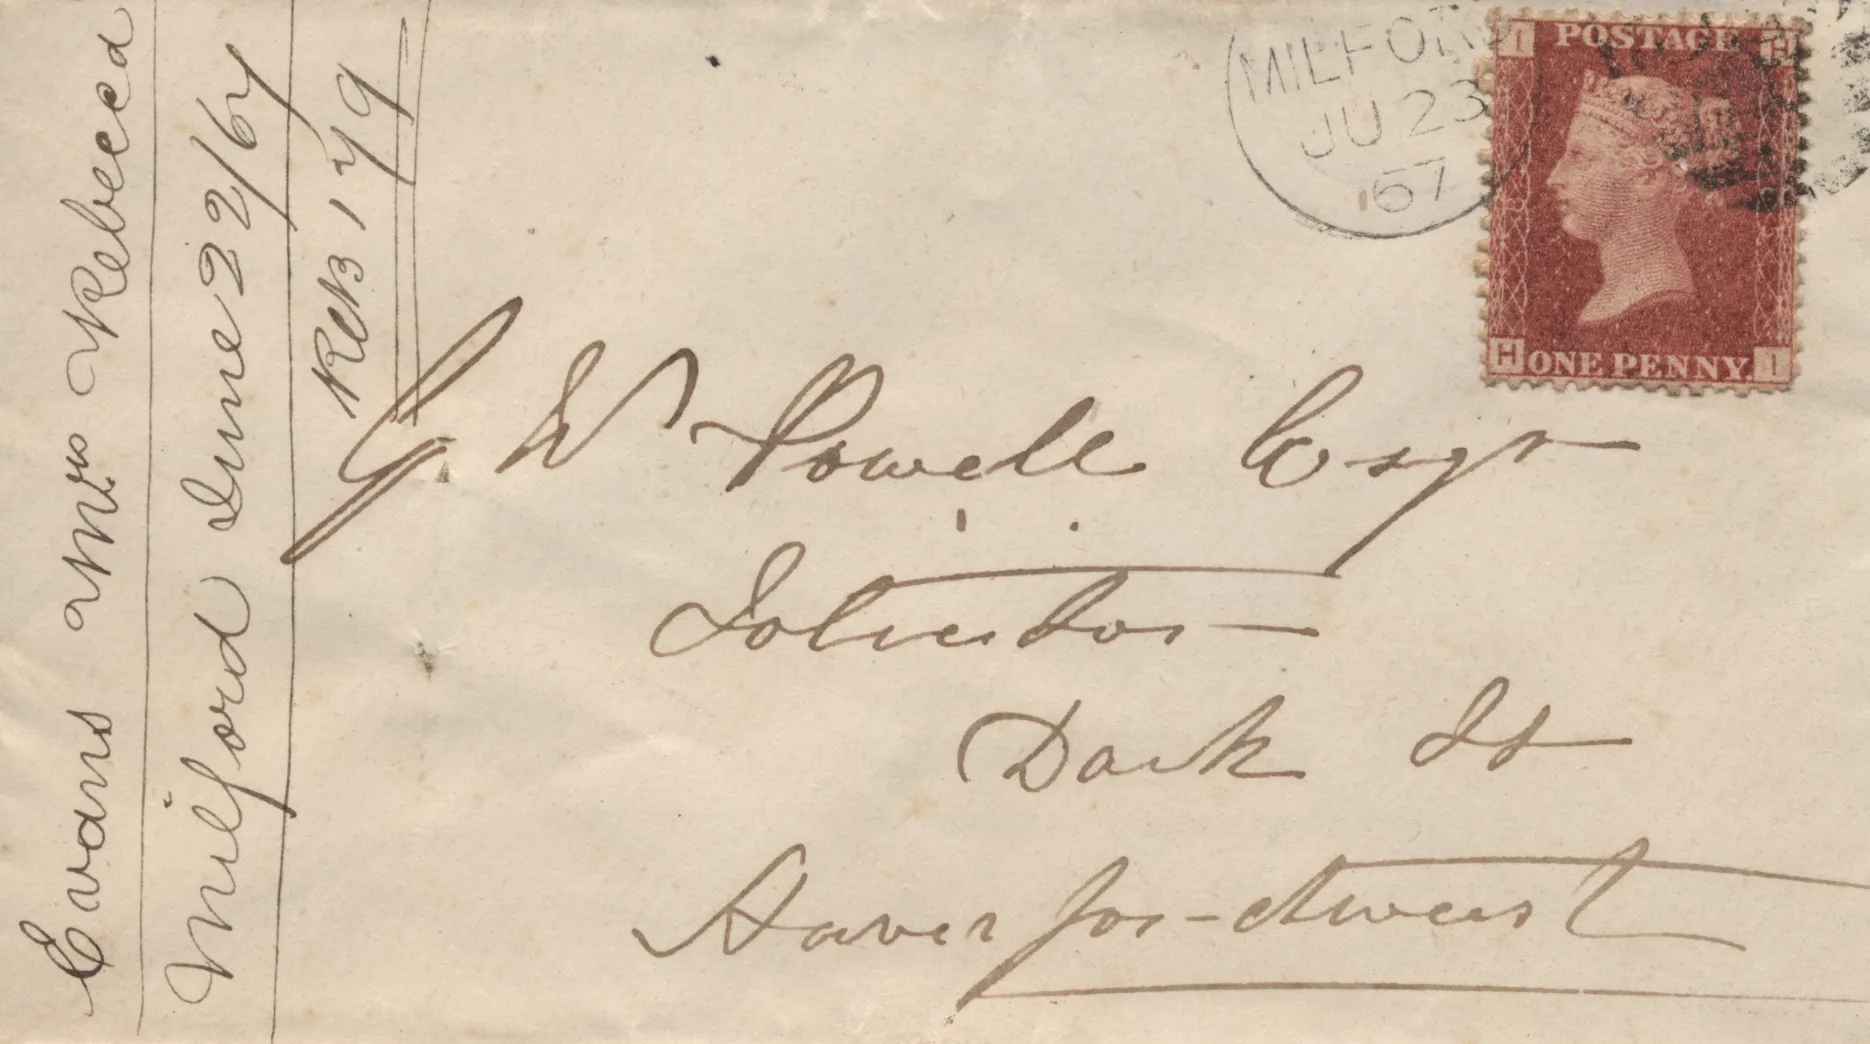 Evans Mrs Rebecca
Milford June 22/67
MILFORD
JU 23
67
I POSTAGE H
H ONE PENNY. I
G W Powell Esqr
Solicitor
Dark St
Haverfordwest